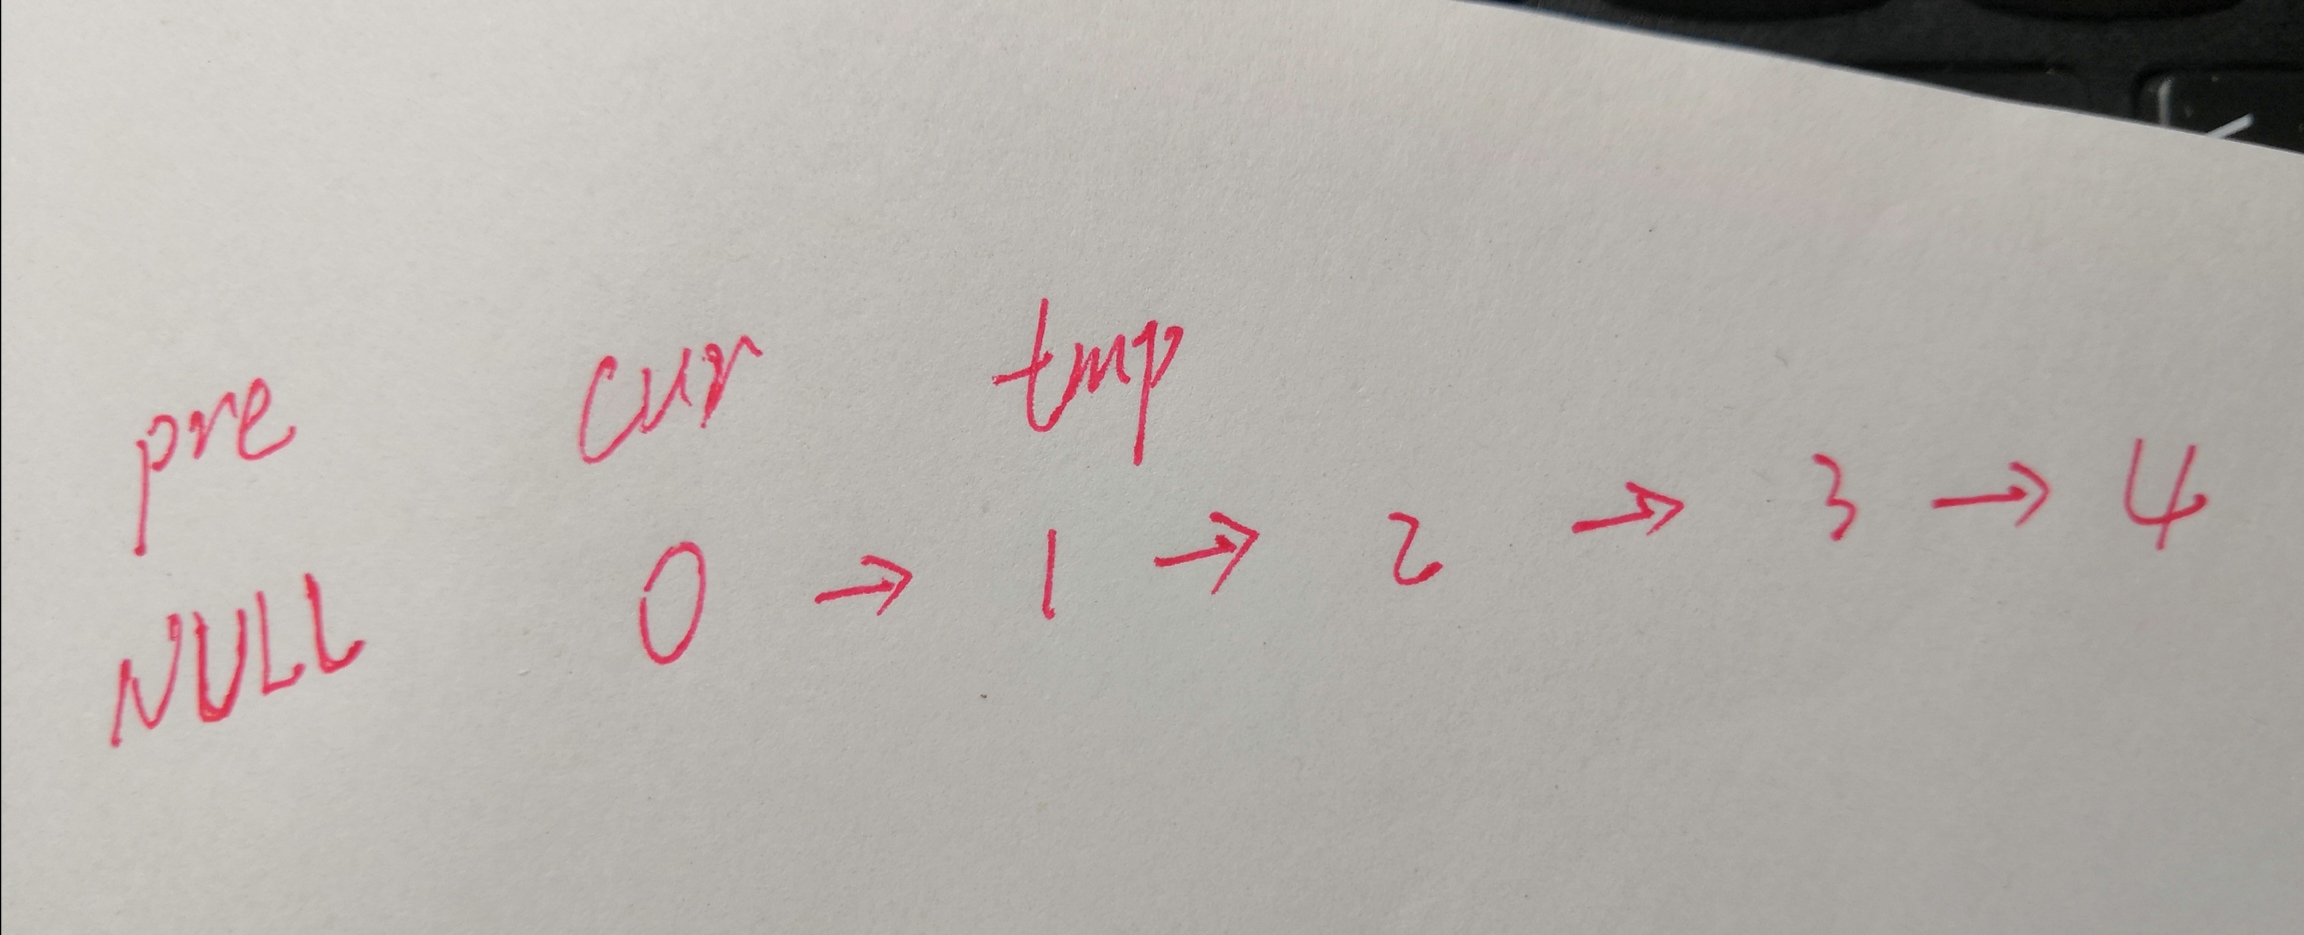 pre cur tmp
NULL 0 → 1 → 2 → 3 → 4